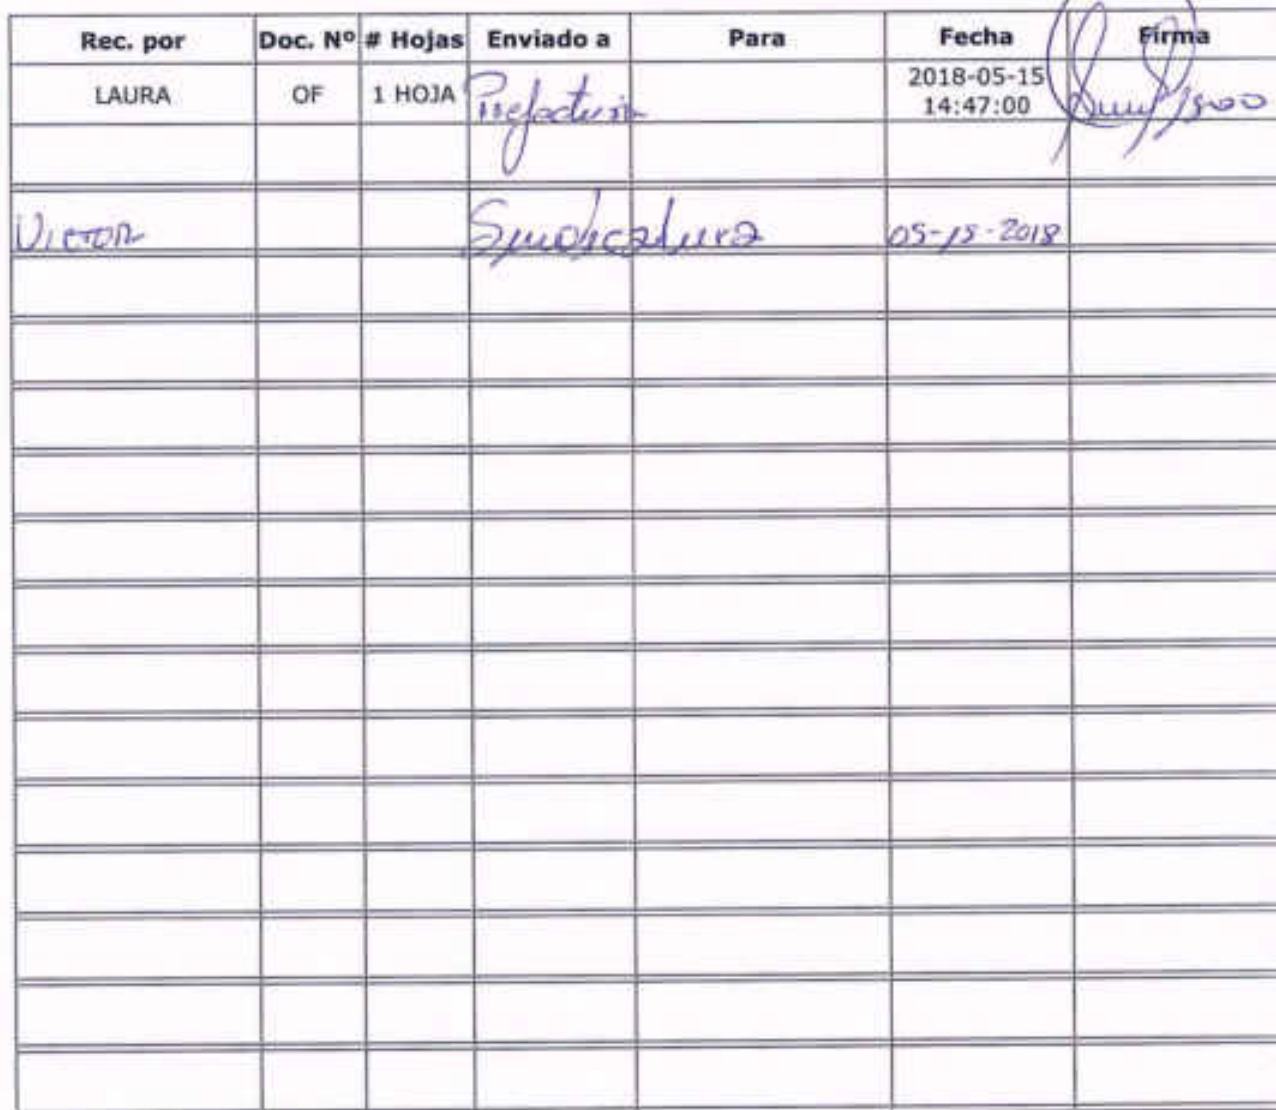 Rec. por Doc. Nº # Hojas Enviado a Para Fecha Firma
LAURA OF 1 HOJA Prefectura 2018-05-15
14:47:00
VICTOR Sindicatura 05-15-2018